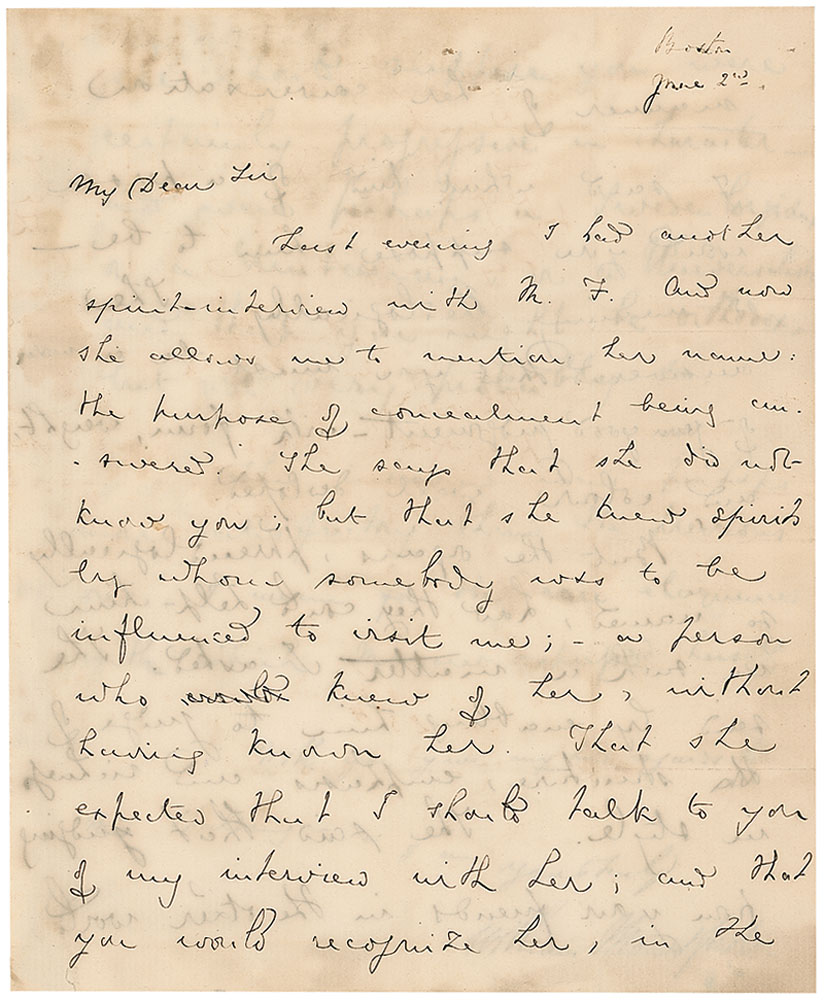 Boston
June 2nd.
My Dear Sir
Last evening I had another
spirit-interview with M. F. And now
she allows me to mention her name:
the purpose of concealment being an-
-swered. She says that she did not
know you; but that she knew spirits
by whom somebody was to be
influenced to visit me; - a person
who knew of her, without
having known her. That she
expected that I should talk to you
of my interview with her; and that
you would recognize her, in the